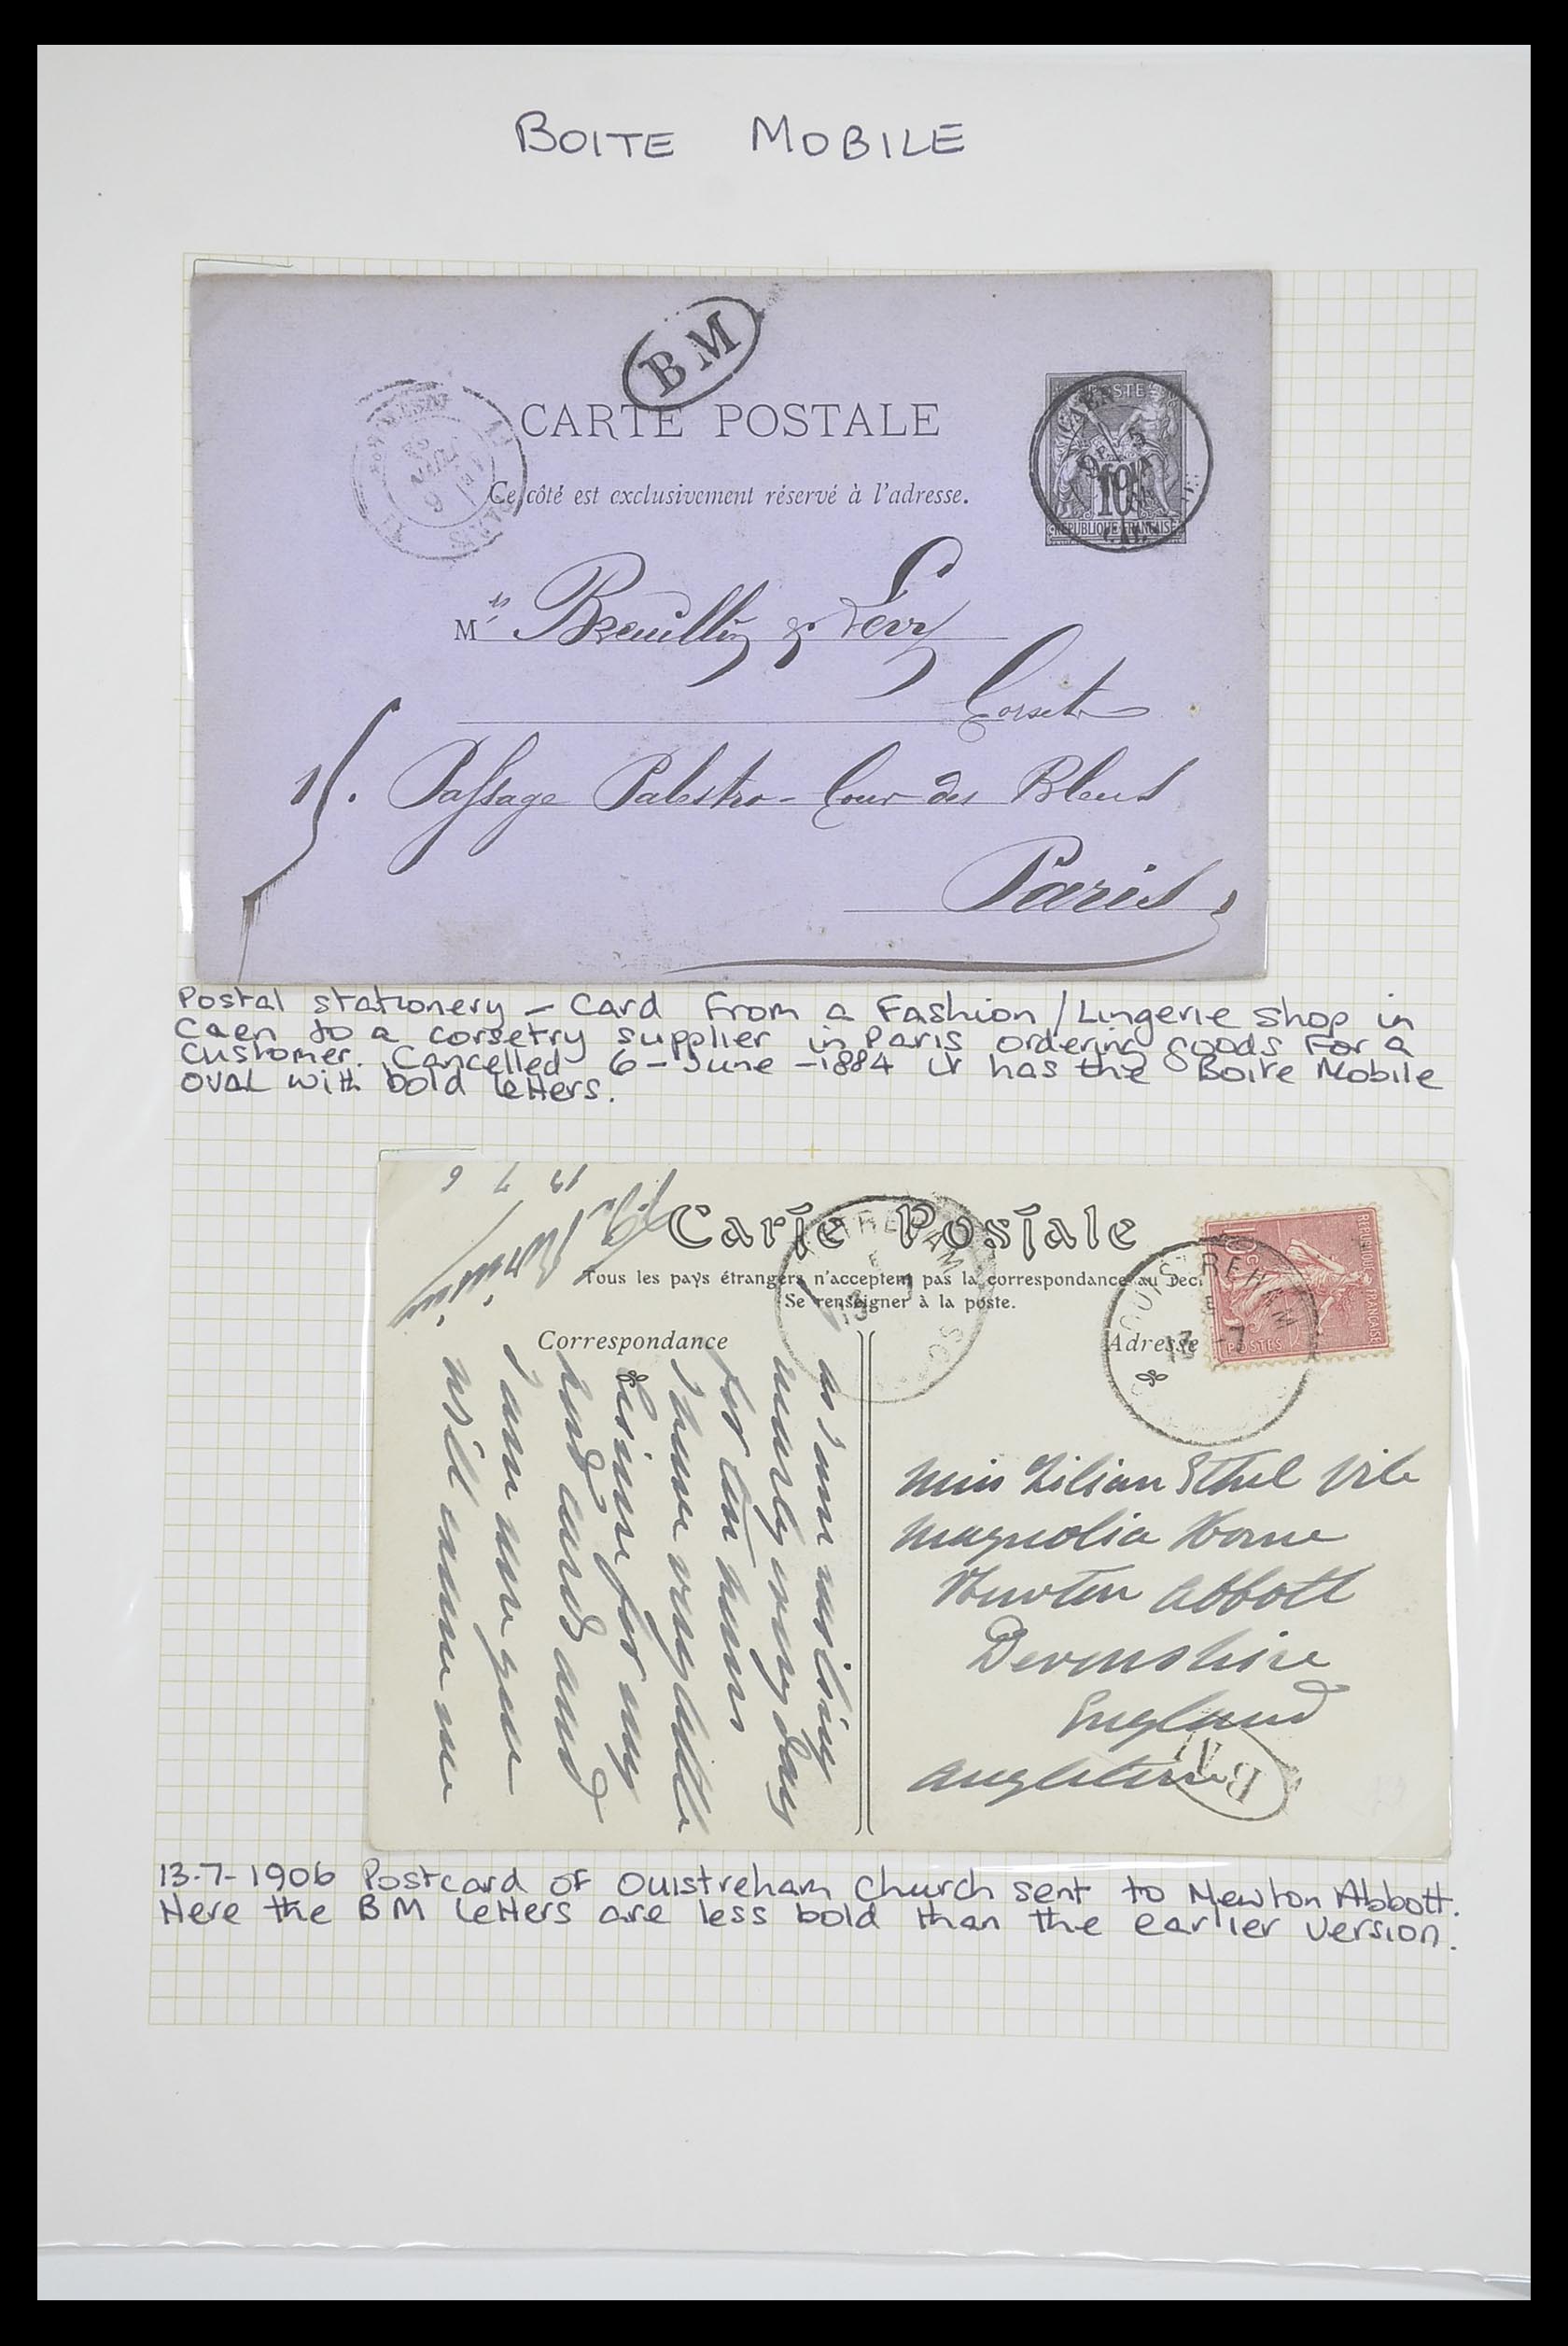 BOITE MOBILE
BM
CARTE POSTALE
Ce côté est exclusivement réservé à l'adresse.
POSTE
10
RÉPUBLIQUE FRANÇAISE
PARIS
CAEN
Mrs & Levy
Corsets
15. Passage Palestro - Cour des Bleus
Paris
Postal stationery - Card from a Fashion / Lingerie shop in
Caen to a corsetry supplier in Paris ordering goods for a
customer. Cancelled 6-June-1884 it has the Boite Mobile
OVAL with bold letters.
13 7 6
Carte Postale
Tous les pays étrangers n'acceptent pas la correspondance au
Se renseigner à la poste.
Correspondance
Adresse
10c
REPUBLIQUE FRANÇAISE
POSTES
OUISTREHAM
13 -7
as I am
nearly every day
for hours
I have very little
time for my
and
I am sure you
will me
Miss Lilian Ethel Vile
Magnolia House
Newton Abbott
Devonshire
England
Angleterre
BM
13-7-1906 Postcard of Ouistreham Church sent to Newton Abbott.
Here the BM letters are less bold than the earlier version.